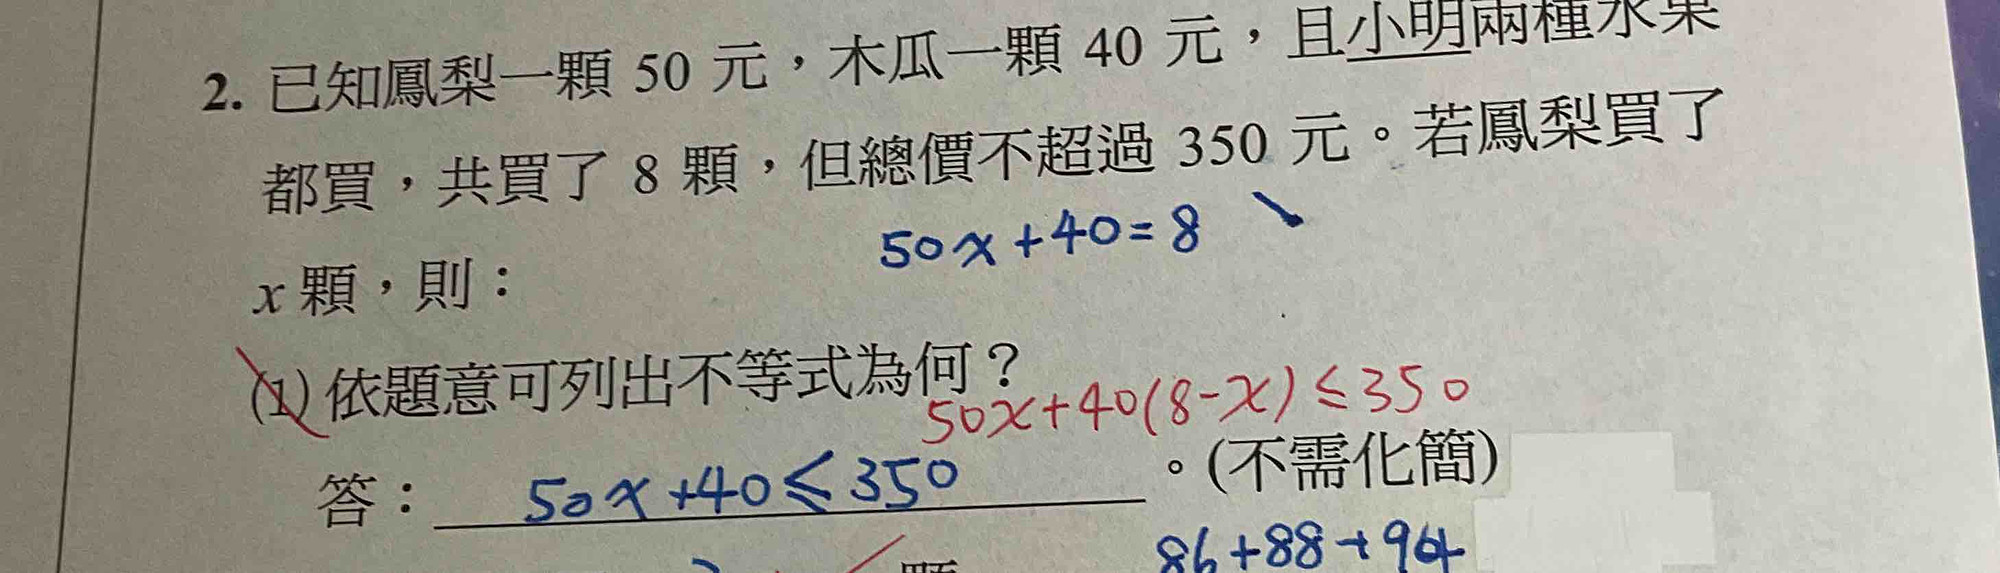 2. 已知鳳梨一顆 50 元，木瓜一顆 40 元，且小明兩種水果
都買，共買了 8 顆，但總價不超過 350 元。若鳳梨買了
50x+40=8
x 顆，則：
(1) 依題意可列出不等式為何？
50x+40(8-x)≤350
答： 50x+40≤350 。(不需化簡)
86+88+94